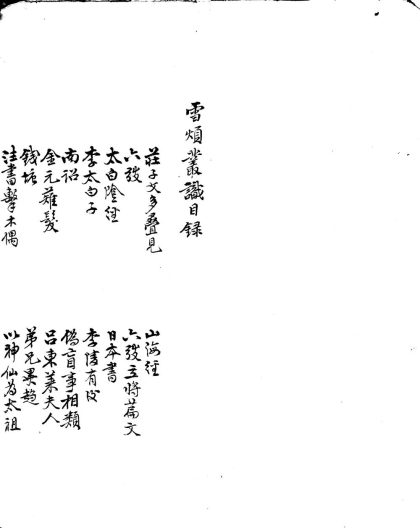 雪煩叢識目録
莊子文多疊見
山海經
六弢
六弢立將篇文
太白陰經
日本書
李太白子
李陵有後
南詔
偽盲事相類
金元薙髮
呂東萊夫人
錢塘
弟兄異趨
注書擊木偶
以神仙為太祖